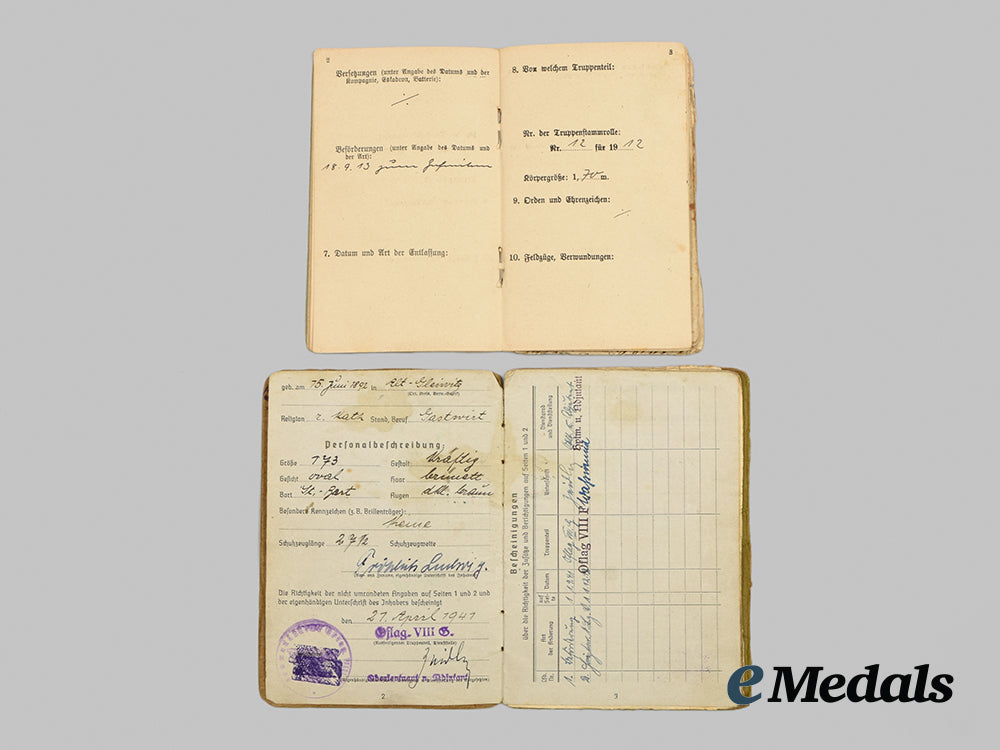 2
Versetzungen (unter Angabe des Datums und der
Kompagnie, Eskadron, Batterie):
Beförderungen (unter Angabe des Datums und
der Art):
18.9.13 zum Gefreiten
7. Datum und Art der Entlassung:
3
8. Von welchem Truppenteil:
Nr. der Truppenstammrolle:
Nr. 12 für 1912
Körpergröße: 1,70 m.
9. Orden und Ehrenzeichen:
10. Feldzüge, Verwundungen:
geb. am 15. Juni 1892 in Alt-Gleiwitz
(Ort, Kreis, Verw.-Bezirk)
Religion r. Kath Stand, Beruf Gastwirt
Personalbeschreibung:
Größe 173 Gestalt kräftig
Gesicht oval Haar
Bart Augen dkl. braun
Besondere Kennzeichen (z.B. Brillenträger):
Keine
Schuhzeuglänge Schuhzeugweite
Fröhlich Ludwig.
(Vor- und Zuname, eigenhändige Unterschrift des Inhabers)
Die Richtigkeit der nicht umrandeten Angaben auf Seiten 1 und 2 und
der eigenhändigen Unterschrift des Inhabers bescheinigt
den 21. April 1941
Oflag. VIII G.
(Ausfertigender Truppenteil, Dienststelle)
Oberleutnant u. Adjutant
2
Bescheinigungen
über die Richtigkeit der Zusätze und Berichtigungen auf Seiten 1 und 2
Lfd. Nr.
Art der Änderung
auf Seite
Datum
Truppenteil
Unterschrift
Dienstgrad und Dienststellung
1. Beförderung
2.
Oflag VIII F
Hptm. u. Adjutant
3
eMedals